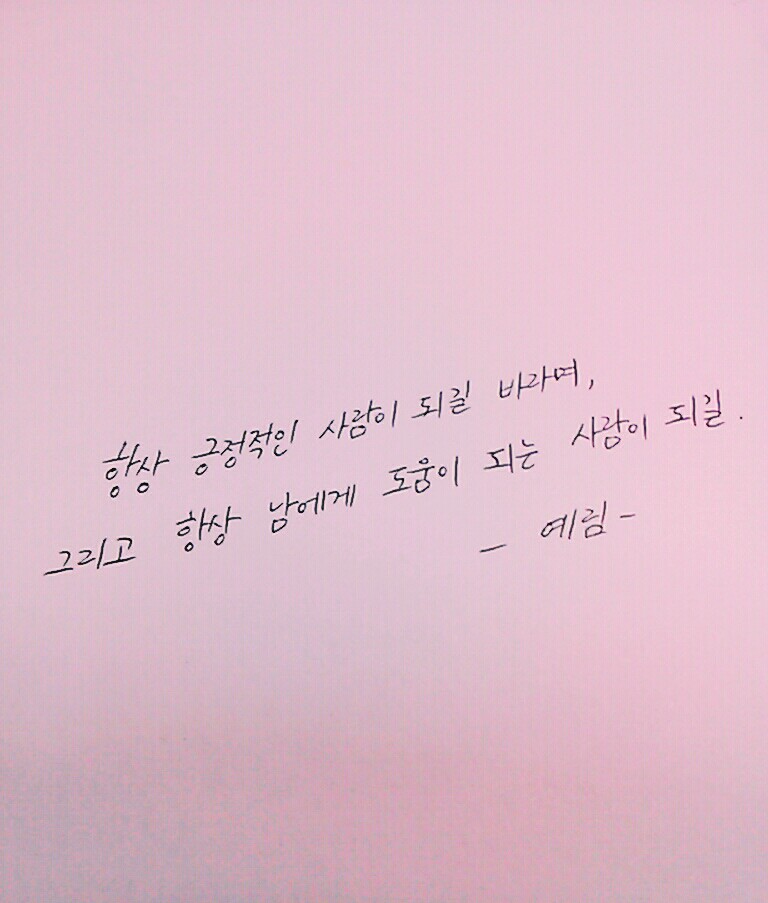 항상 긍정적인 사람이 되길 바라며,
그리고 항상 남에게 도움이 되는 사람이 되길.
- 예림 -